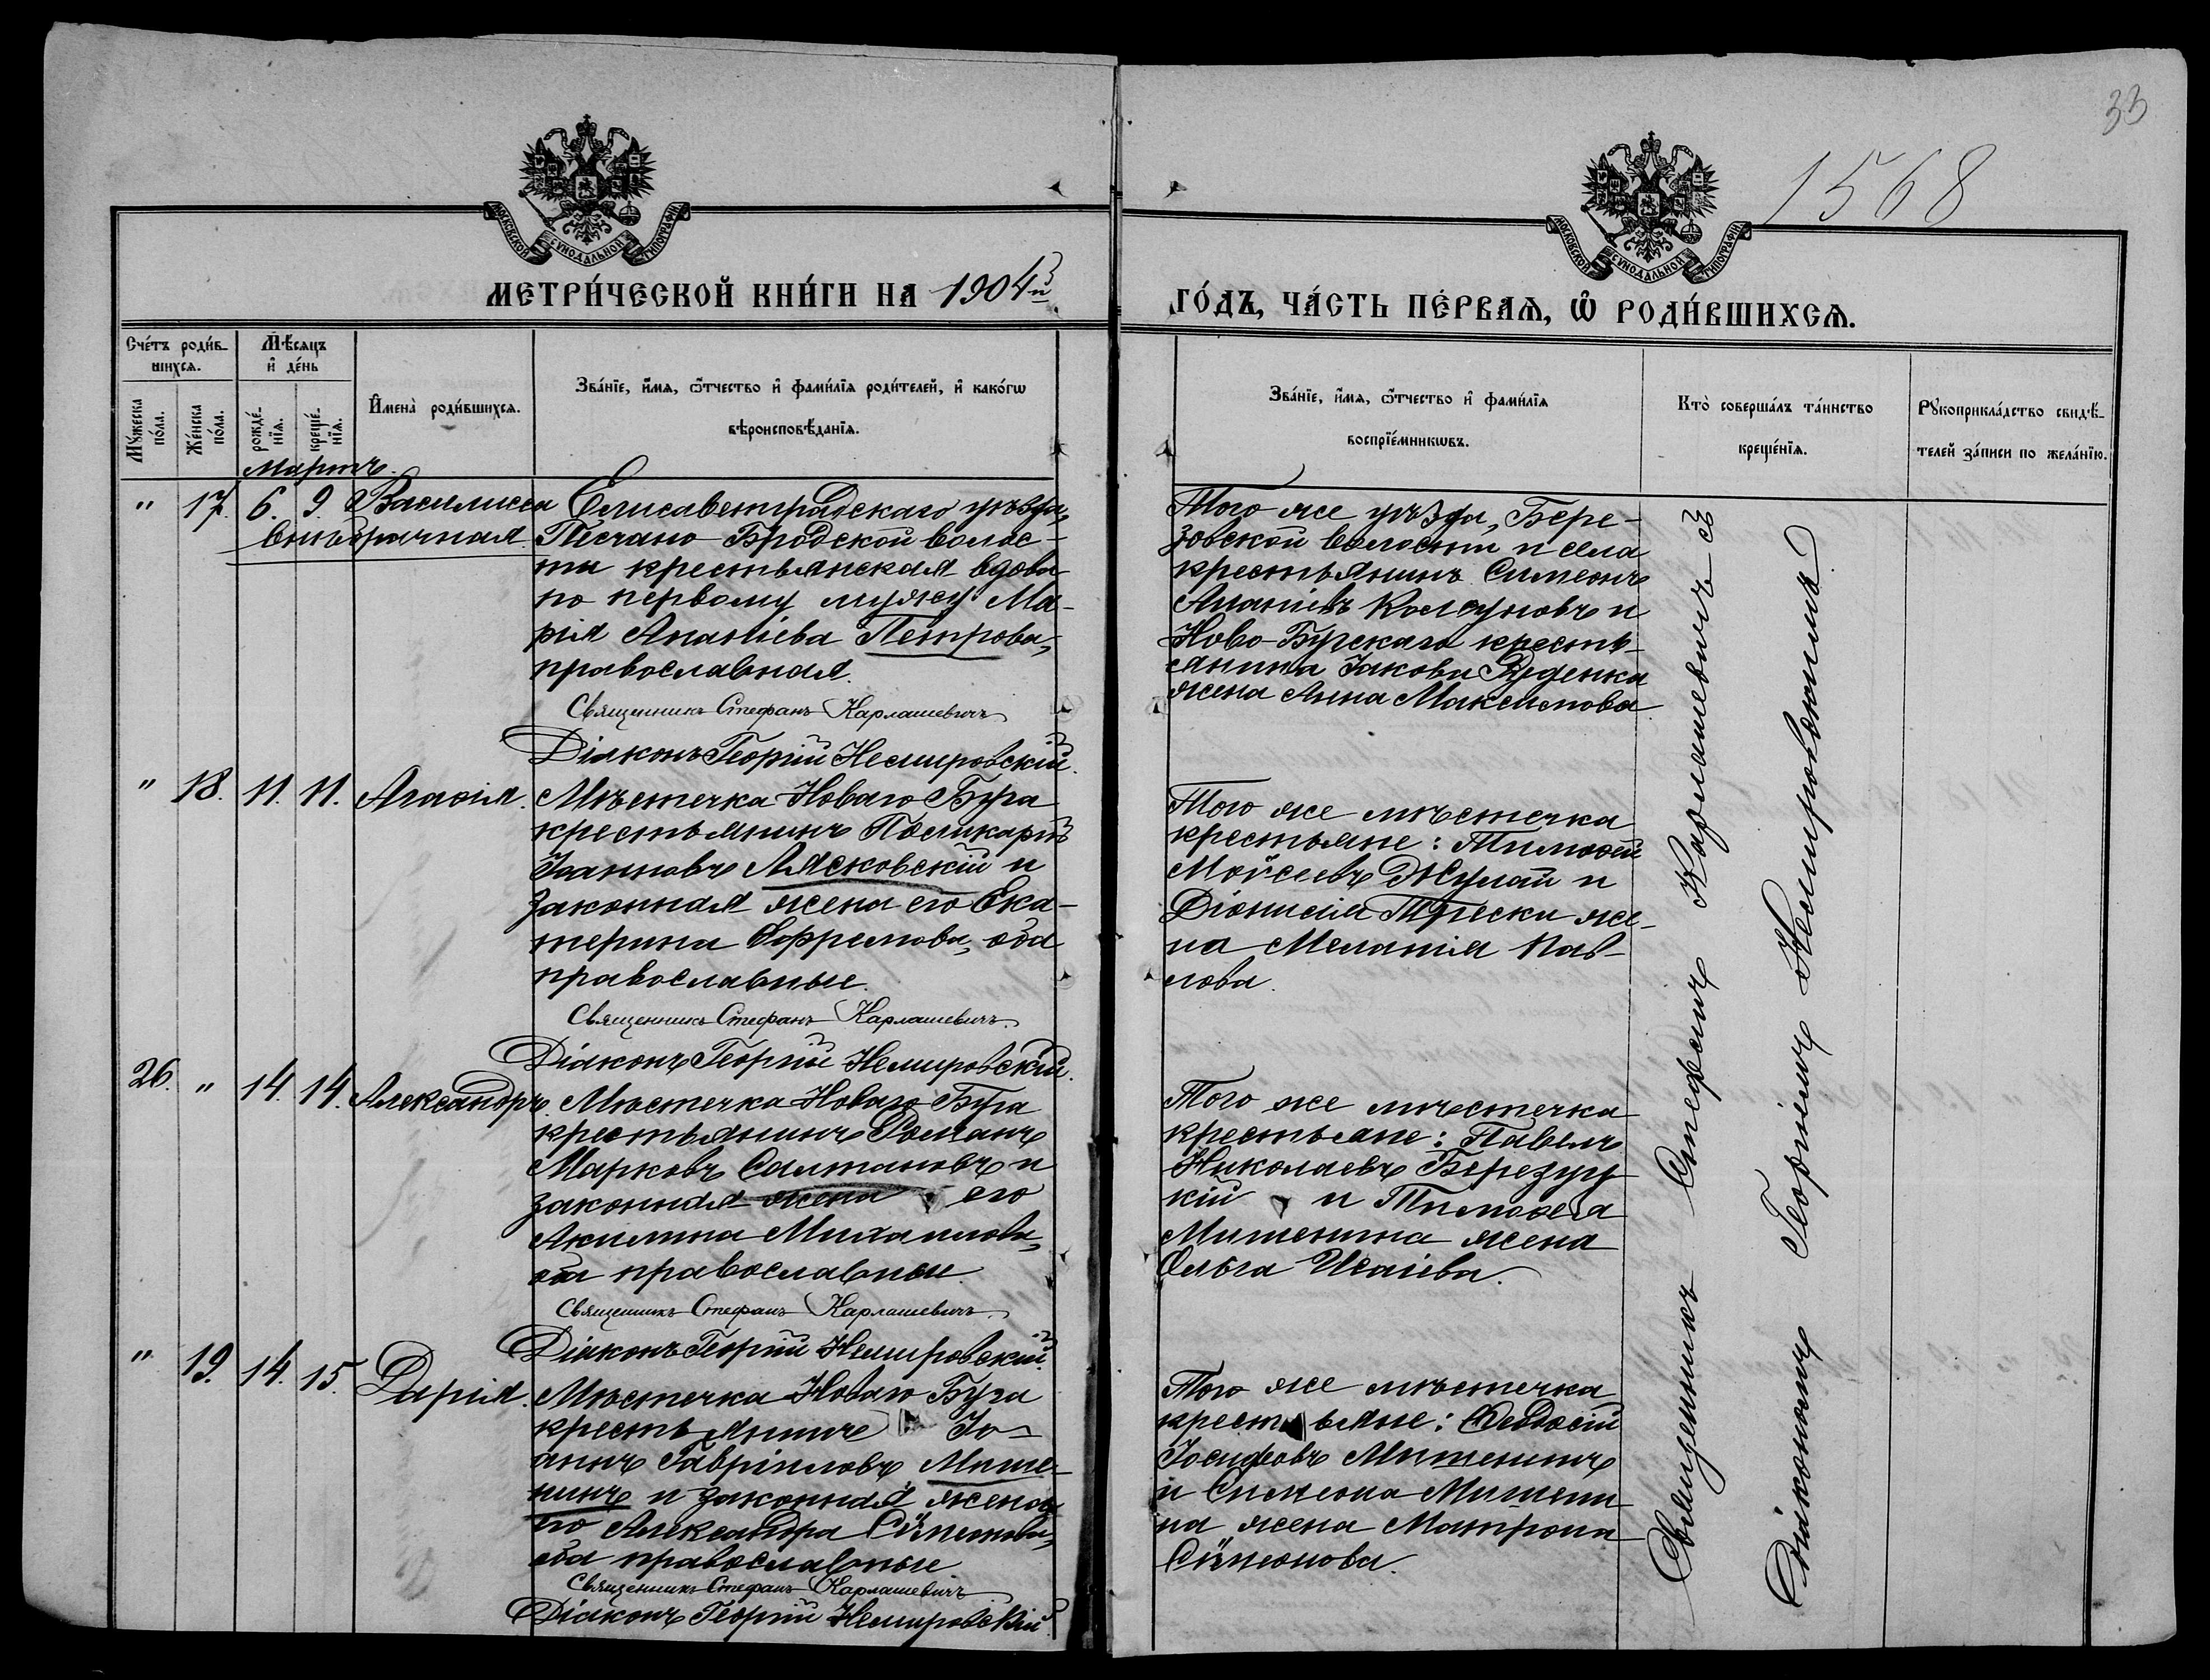 33
1568
МОСКОВСКОЙ СѴНОДАЛЬНОЙ ТИПОГРАФІИ
МОСКОВСКОЙ СѴНОДАЛЬНОЙ ТИПОГРАФІИ
МЕТРИ́ЧЕСКОЙ КНИ́ГИ НА 1904й
ГО́ДЪ, ЧА́СТЬ ПЕ́РВАѦ, Ѡ҆ РОДИ́ВШИХСѦ.
Сче́тъ роди́в-
шихсѧ.
Мѣ́сяцъ
и҆ де́нь
Мꙋ́жеска
по́ла.
Же́нска
по́ла.
рожде́-
нїѧ.
креще́-
нїѧ.
И҆мена̀ роди́вшихсѧ.
Зва́нїе, и҆́мѧ, ѻ҆́тчество и҆ фамѝлїѧ роди́телей, и҆ како́гѡ
вѣроисповѣ́данїѧ.
Зва́нїе, и҆́мѧ, ѻ҆́тчество и҆ фамѝлїѧ
воспрїе́мникѡвъ.
Кто̀ соверша́лъ та́инство
креще́нїѧ.
Рꙋкоприкла́дство свидѣ́-
телей за́писи по жела́нїю.
Мартъ.
" 17. 6. 9. Василисса
внѣбрачная
Елисаветградскаго уѣзда,
Песчано-Бродской волос-
ти крестьянская вдова
по первому мужу Ма-
рія Ананіева Петрова,
православная.
Священникъ Стефанъ Карлашевичъ
Діаконъ Георгій Немировскій.
Того же уѣзда, Бере-
зовской волости и села
крестьянинъ Симеонъ
Ананіевъ Колтуновъ и
Ново-Бугскаго кресть-
янина Іакова Руденка
жена Анна Максимова
" 18. 11. 11. Агафія.
Мѣстечка Новаго Буга
крестьянинъ Поликарпъ
Іоанновъ Лясковскій и
законная жена его Ека-
терина Ефремова, оба
православные.
Священникъ Стефанъ Карлашевичъ.
Діаконъ Георгій Немировскій.
Того же мѣстечка
крестьяне: Тимоѳей
Моѵсеевъ Жулай и
Діонисія Трески же-
на Меланія Пав-
лова.
26. " 14. 14. Александръ.
Мѣстечка Новаго Буга
крестьянинъ Романъ
Марковъ Салтановъ и
законная жена его
Акилина Михаилова,
оба православные.
Священникъ Стефанъ Карлашевичъ.
Діаконъ Георгій Немировскій.
Того же мѣстечка
крестьяне: Павелъ
Николаевъ Березуц-
кій и Тимоѳея
Мишенина жена
Ольга Исаіева.
" 19. 14. 15. Дарія.
Мѣстечка Новаго Буга
крестьянинъ Іо-
аннъ Гавріиловъ Мише-
нинъ и законная жена
его Александра Сѵмеонова,
оба православные
Священникъ Стефанъ Карлашевичъ
Діаконъ Георгій Немировскій.
Того же мѣстечка
крестьяне: Ѳеодосій
Іосифовъ Мишенинъ
и Симеона Мишени-
на жена Матрона
Сѵмеонова.
Священникъ Стефанъ Карлашевичъ съ
Діакономъ Георгіемъ Немировскимъ